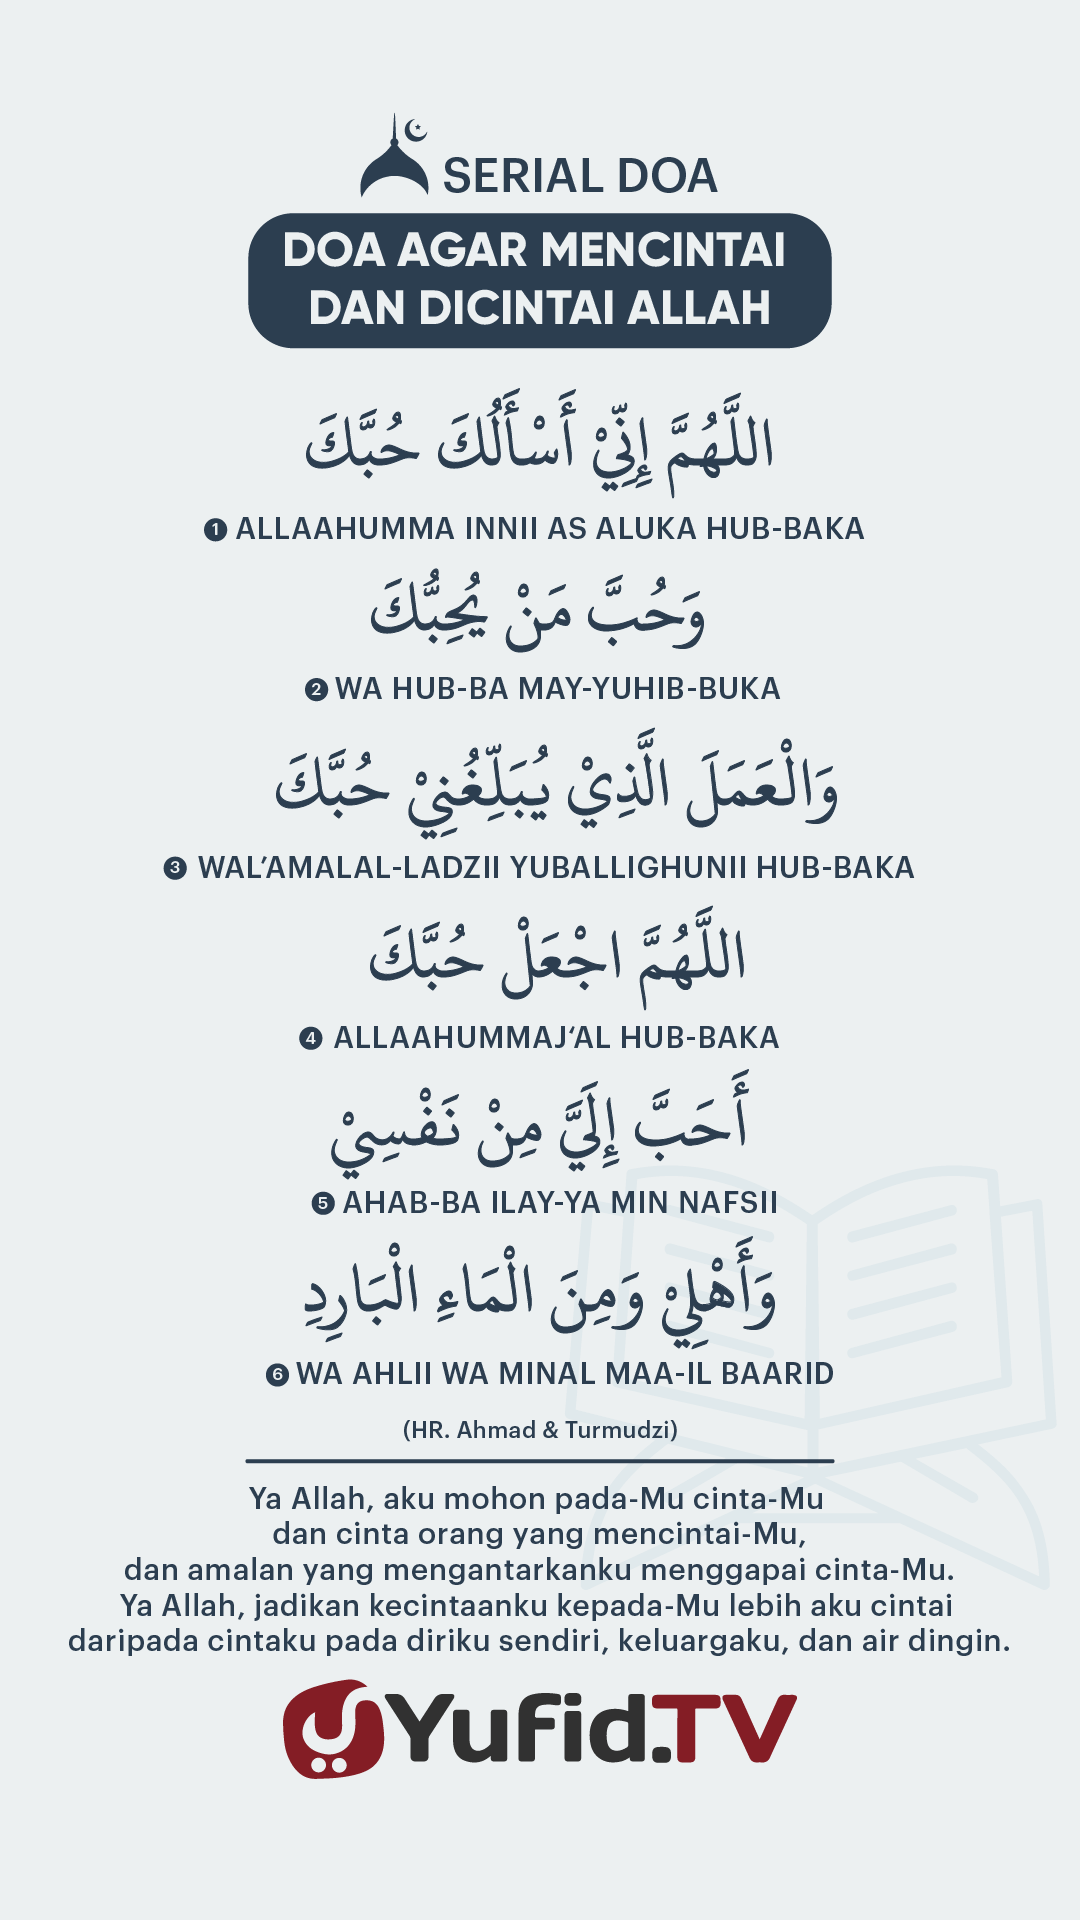 SERIAL DOA
DOA AGAR MENCINTAI
DAN DICINTAI ALLAH
اللَّهُمَّ إِنِّيْ أَسْأَلُكَ حُبَّكَ
1 ALLAAHUMMA INNII AS ALUKA HUB-BAKA
وَحُبَّ مَنْ يُحِبُّكَ
2 WA HUB-BA MAY-YUHIB-BUKA
وَالْعَمَلَ الَّذِيْ يُبَلِّغُنِيْ حُبَّكَ
3 WAL’AMALAL-LADZII YUBALLIGHUNII HUB-BAKA
اللَّهُمَّ اجْعَلْ حُبَّكَ
4 ALLAAHUMMAJ‘AL HUB-BAKA
أَحَبَّ إِلَيَّ مِنْ نَفْسِيْ
5 AHAB-BA ILAY-YA MIN NAFSII
وَأَهْلِيْ وَمِنَ الْمَاءِ الْبَارِدِ
6 WA AHLII WA MINAL MAA-IL BAARID
(HR. Ahmad & Turmudzi)
Ya Allah, aku mohon pada-Mu cinta-Mu
dan cinta orang yang mencintai-Mu,
dan amalan yang mengantarkanku menggapai cinta-Mu.
Ya Allah, jadikan kecintaanku kepada-Mu lebih aku cintai
daripada cintaku pada diriku sendiri, keluargaku, dan air dingin.
Yufid.TV